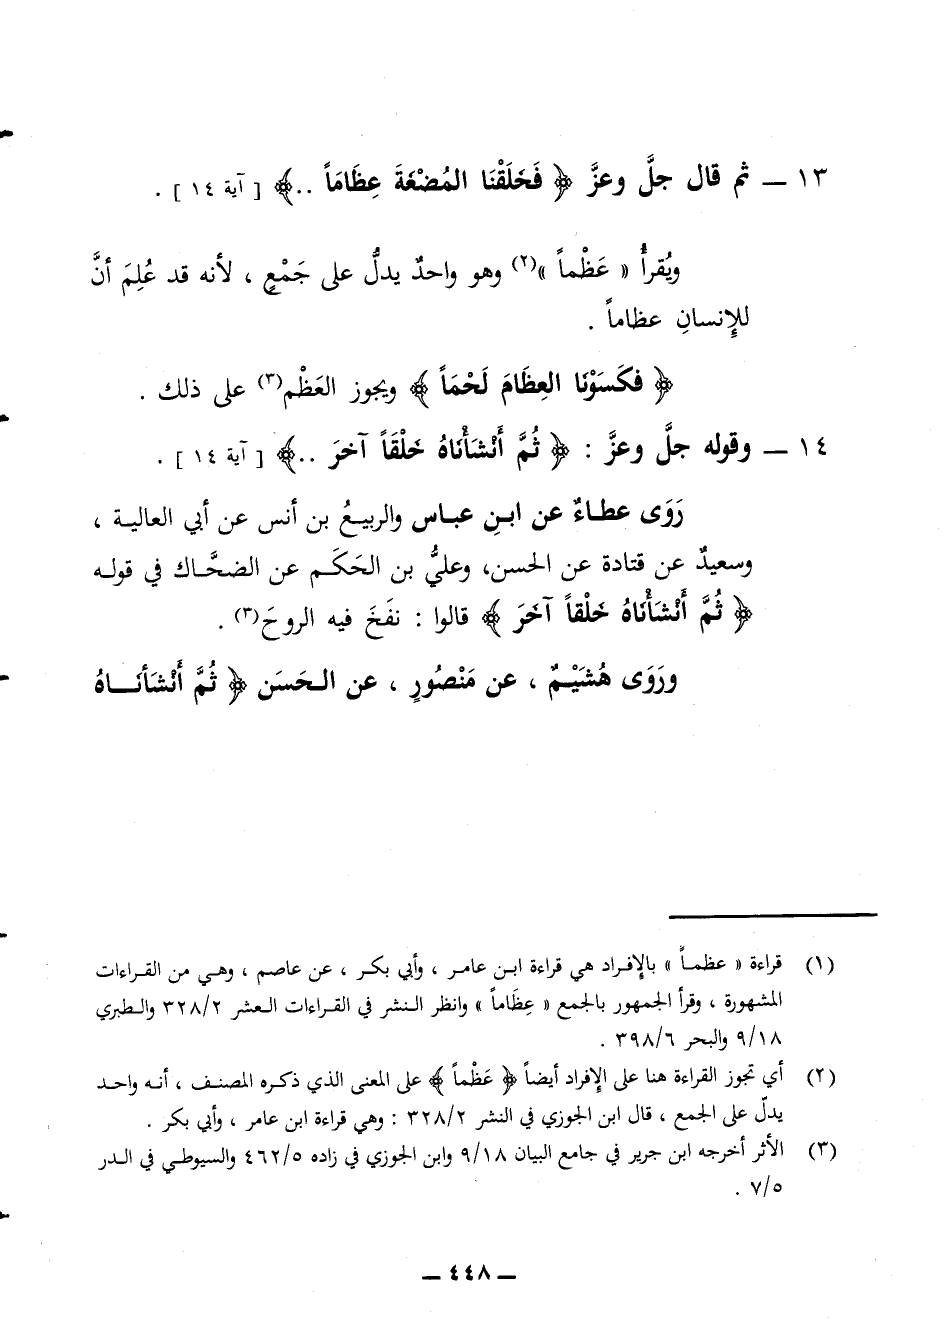 ١٣ ــ ثم قال جلَّ وعزَّ ﴿ فَخَلَقْنَا المُضْغَةَ عِظَامَاً ..﴾ [ آية ١٤ ] .
ويُقرأُ « عَظْماً »(٢) وهو واحدٌ يدلُّ على جَمْعٍ ، لأنه قد عُلِمَ أنَّ
للإِنسانِ عظاماً .
﴿ فكَسَوْنَا العِظَامَ لَحْمَاً ﴾ ويجوز العَظْم(٣) على ذلك .
١٤ ــ وقوله جلَّ وعزَّ : ﴿ ثُمَّ أَنْشَأْنَاهُ خَلْقَاً آخرَ ..﴾ [ آية ١٤ ] .
رَوَى عطاءٌ عن ابنِ عباس والربيعُ بن أنس عن أبي العالية ،
وسعيدٌ عن قتادة عن الحسن، وعليُّ بن الحَكَم عن الضحَّاك في قوله
﴿ ثُمَّ أَنْشَأْنَاهُ خَلْقاً آخَرَ ﴾ قالوا : نفَخَ فيه الروحَ(٣) .
ورَوَى هُشَيْمٌ ، عن مَنْصُورٍ ، عن الحَسَن ﴿ ثُمَّ أَنْشَأنَاهُ
(١) قراءة « عظماً » بالإِفراد هي قراءة ابن عامر ، وأبي بكر ، عن عاصم ، وهي من القراءات
المشهورة ، وقرأ الجمهور بالجمع « عِظَاماً » وانظر النشر في القراءات العشر ٣٢٨/٢ والطبري
٩/١٨ والبحر ٣٩٨/٦ .
(٢) أي تجوز القراءة هنا على الإِفراد أيضاً ﴿ عَظْماً ﴾ على المعنى الذي ذكره المصنف ، أنه واحد
يدلّ على الجمع ، قال ابن الجوزي في النشر ٣٢٨/٢ : وهي قراءة ابن عامر ، وأبي بكر .
(٣) الأثر أخرجه ابن جرير في جامع البيان ٩/١٨ وابن الجوزي في زاده ٤٦٢/٥ والسيوطي في الدر
٧/٥ .
ــ ٤٤٨ ــ